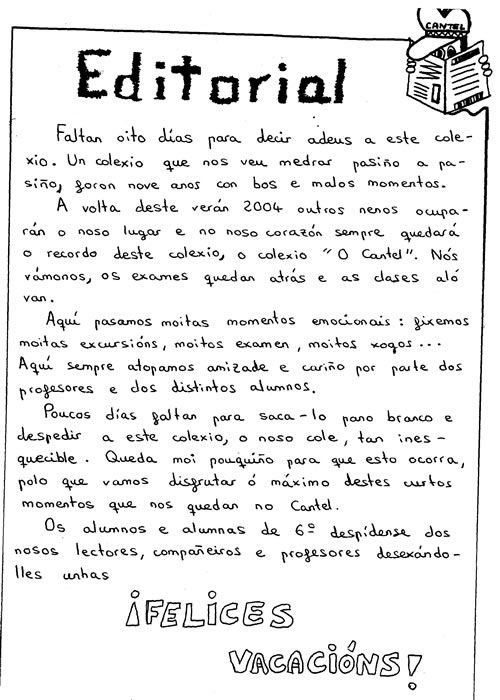 CANTEL
Editorial
Faltan oito días para decir adeus a este cole-
xio. Un colexio que nos veu medrar pasiño a pa-
siño, foron nove anos con bos e malos momentos.
A volta deste verán 2004 outros nenos ocupa-
rán o noso lugar e no noso corazón sempre quedará
o recordo deste colexio, o colexio "O Cantel". Nós
vámonos, os exames quedan atrás e as clases aló
van.
Aquí pasamos moitas momentos emocionais: fixemos
moitas excursións, moitos examen, moitos xogos...
Aquí sempre atopamos amizade e cariño por parte dos
profesores e dos distintos alumnos.
Poucos días faltan para saca-lo pano branco e
despedir a este colexio, o noso cole, tan ines-
quecible. Queda moi pouquiño para que esto ocorra,
polo que vamos disfrutar ó máximo destes curtos
momentos que nos quedan no Cantel.
Os alumnos e alumnas de 6º despídense dos
nosos lectores, compañeiros e profesores desexándo-
lles unhas
¡FELICES
VACACIÓNS!